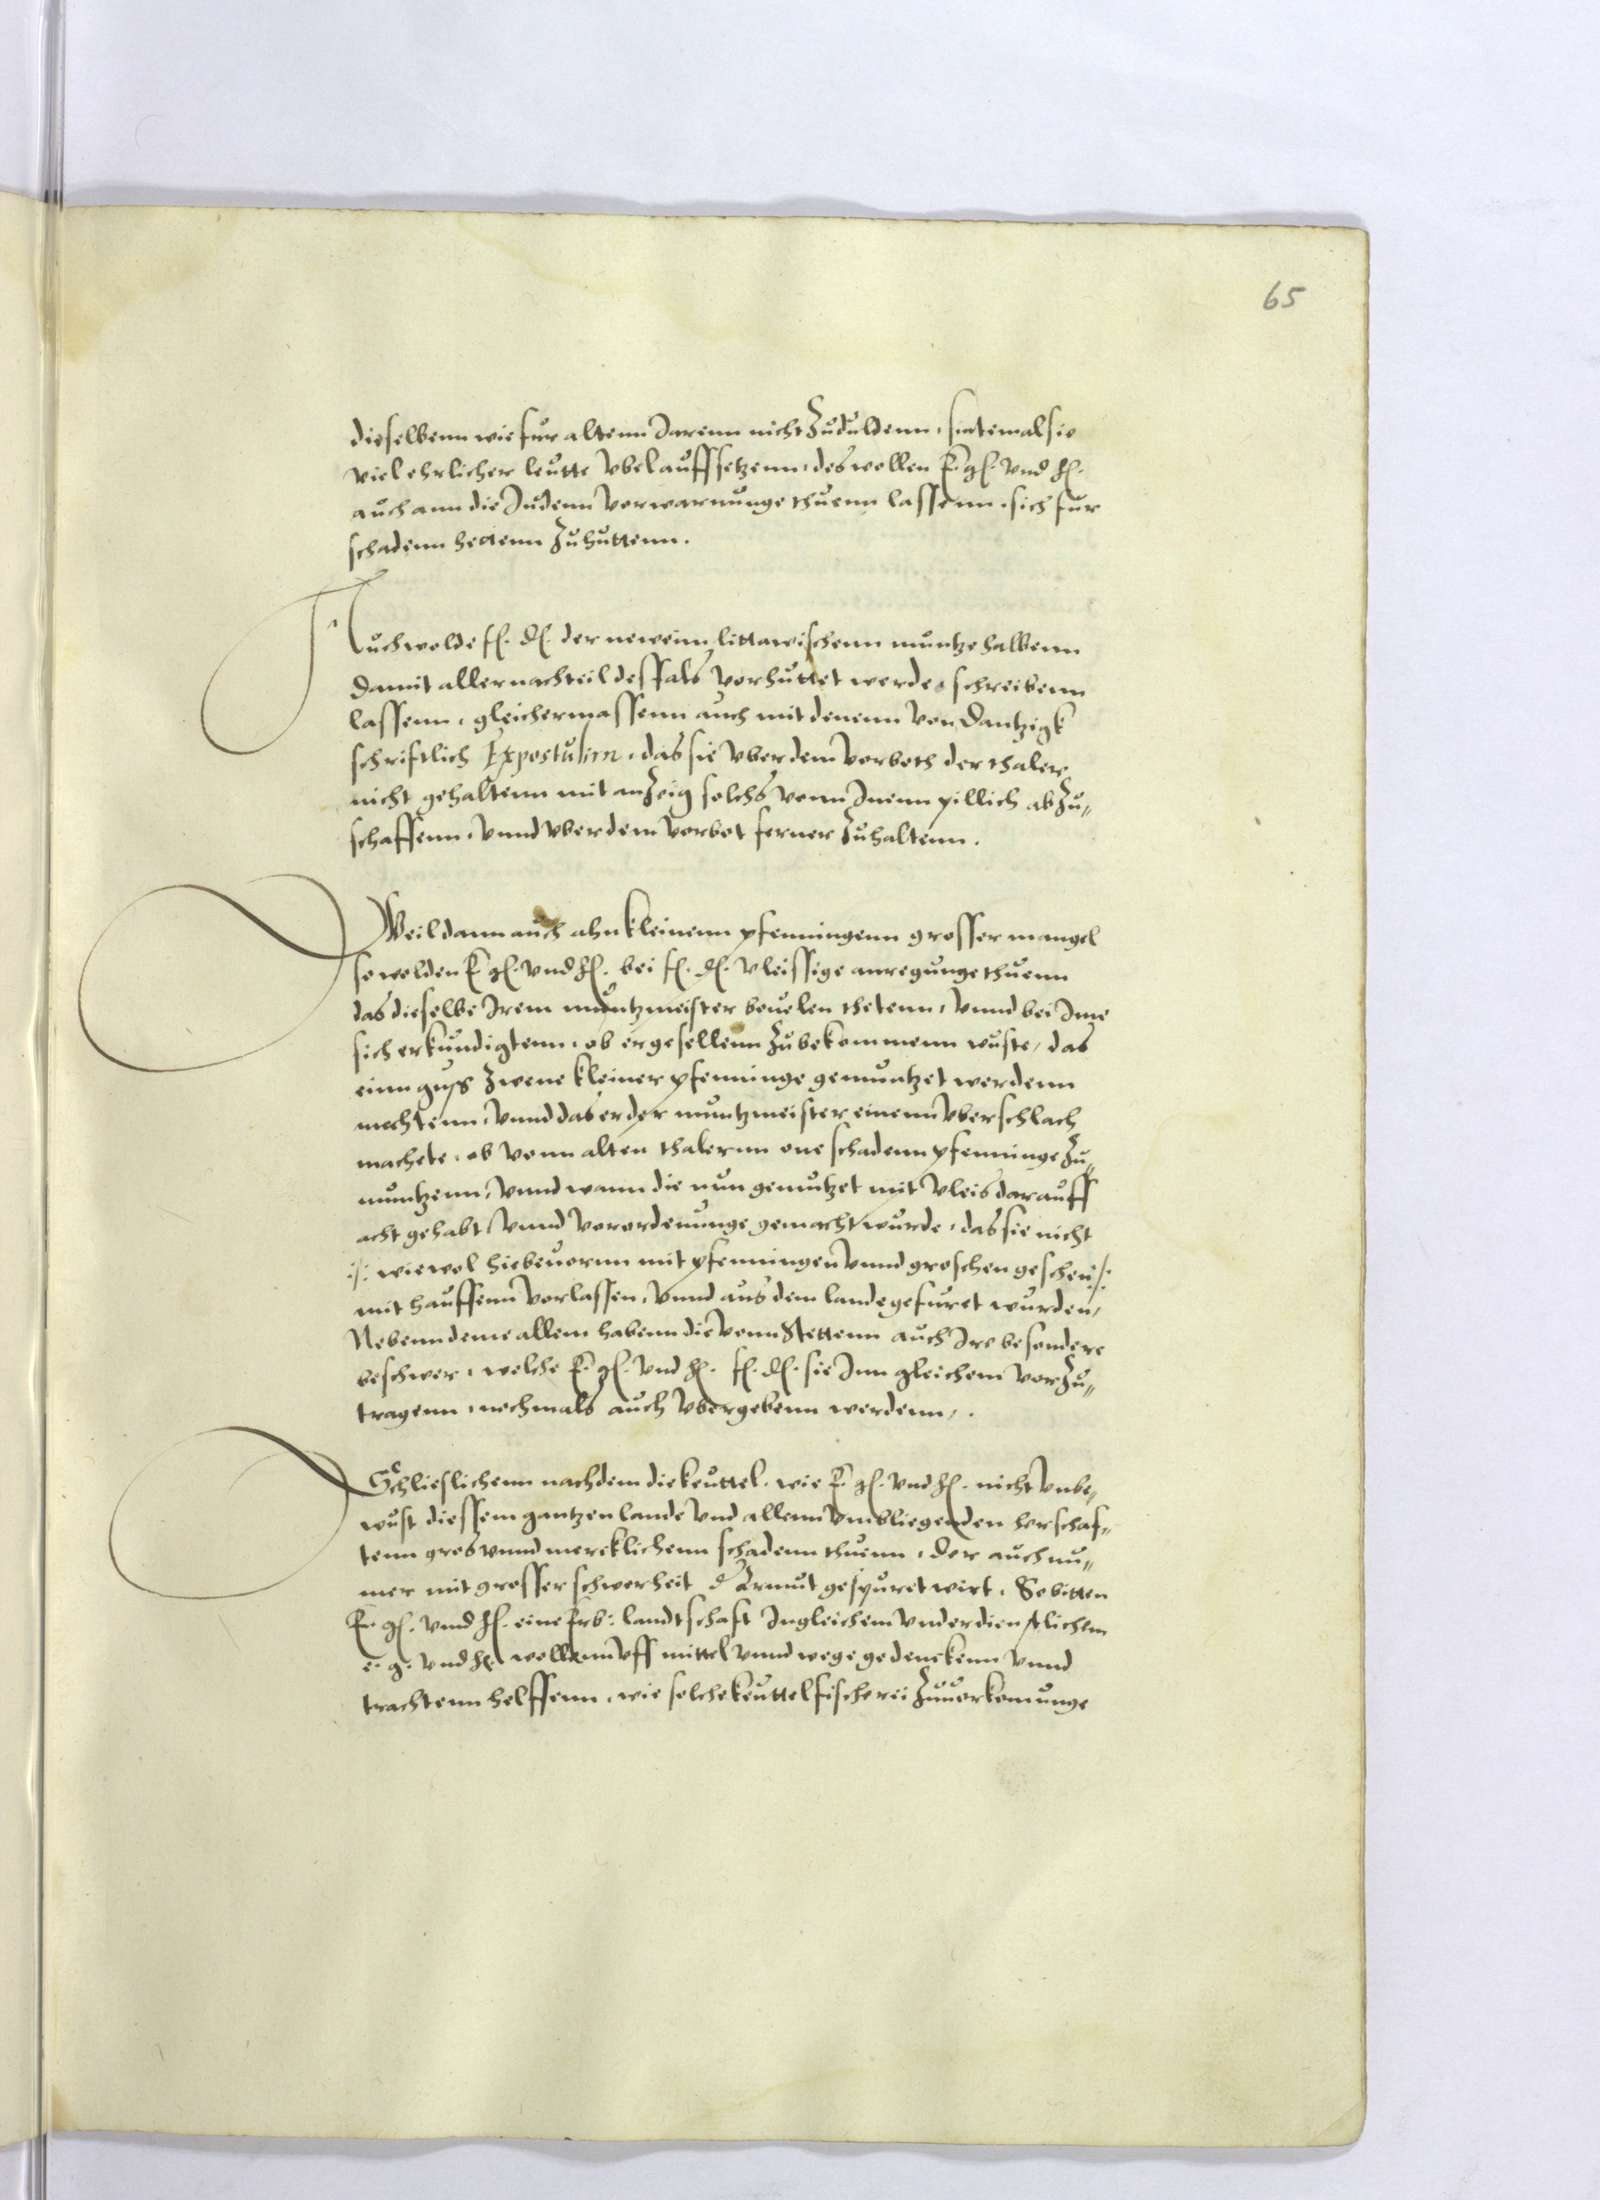 65
dieselbenn wie fur altenn Jarenn nicht zuduldenn, sintemal sie
viel ehrlicher leutte vbel auffsetzenn, des wollen E. g. vnd h.
auch ann die Judenn vorwarnunge thuenn lassenn, sich fur
schadenn hettenn zuhuttenn.
Auch wolde f. d. der neweim littawischenn muntze halbenn
damit aller nachteil desfals vorhuttet werde, schreibenn
lassenn, gleichermassenn auch mit denenn von Dantzigk
schriftlich Expostulirn, das sie vber dem vorboth der thaler
nicht gehaltenn mit anzeig solchs vonn Jnenn pillich abzu„
schaffenn, vnnd vber dem vorbot ferner zuhaltenn.
Weil dann auch ahn kleinenn pfenningenn grosser mangel
so wolden E g. vnd h. bei f. d. vleissige anregunge thuenn
das dieselbe Jrem muntzmeister beuelen thetenn, vnnd bei Jme
sich erkundigtenn, ob er gesellenn zubekommenn wuste, das
einn guss zwene kleiner pfenninge gemuntzet werdenn
mochtenn, vnnd das er der muntzmeister einenn vberschlach
machete, ob vonn alten thalernn one schadenn pfenninge zu„
muntzenn, vnnd wann die nun gemutzet mit vleis darauff
acht gehabt, vnnd verordenunge gemacht wurde, das sie nicht
:/: wie wol hiebeuornn mit pfenningen vnnd groschen geschen :/:
mit hauffenn vorlassen, vnnd aus dem lande gefuret wurden,
Nebenn deme allem habenn die vonn Stettenn auch Jre besondere
beschwer, welche E. g. vnd h. f. d. sie Jnn gleichem vorzu„
tragenn, nochmals auch vbergebenn werdenn,.
Schlieslichenn nachdem die keuttel, wie E. g. vnd h. nicht vnbe„
wust diessem gantzen lande vnd allenn vmbliegenden herschaf„
tenn gros vnnd mercklichenn schadenn thuenn, der auch nu„
mer mit grosser schwerheit d Armut gespuret wirt, So bitten
E. g. vnnd h. eine Erb: landtschaft Jngleichem vnderdienstlichenn
e. g. vnd h. wollenn vff mittel vnnd wege gedenckenn vnnd
trachtenn helffenn, wie solche keuttelfischerei zuuorkomunge